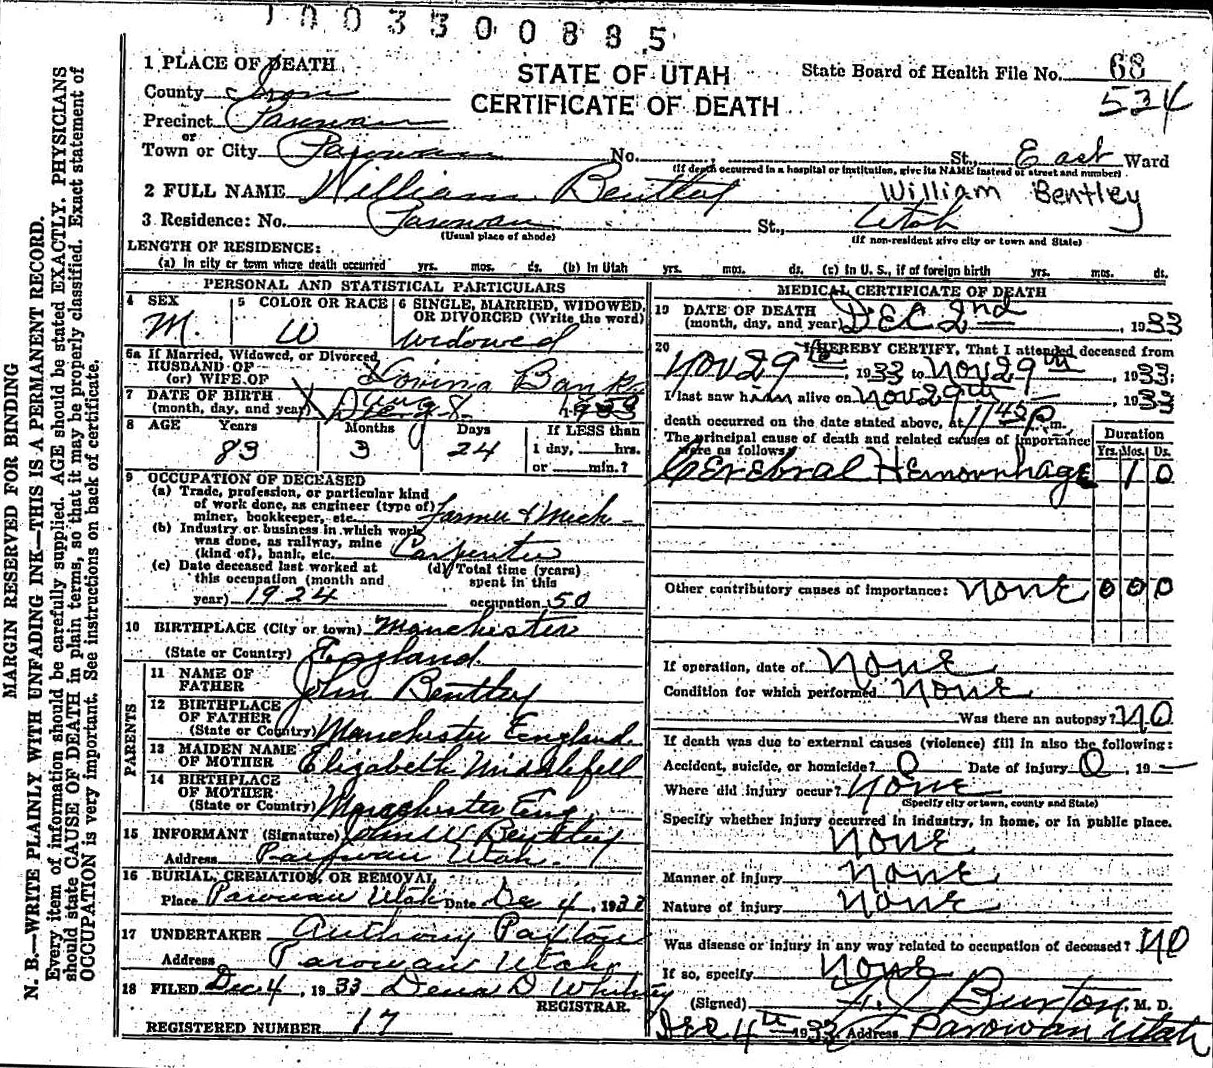 1003300885
1 PLACE OF DEATH
STATE OF UTAH
CERTIFICATE OF DEATH
State Board of Health File No. 68
534
County Iron
Precinct Parowan
or
Town or City Parowan No. St., East Ward
(If death occurred in a hospital or institution, give its NAME instead of street and number)
2 FULL NAME William Bentley William Bentley
3 Residence: No. Parowan St., Utah
(Usual place of abode) (If non-resident give city or town and State)
LENGTH OF RESIDENCE:
(a) In city or town where death occurred yrs. mos. ds. (b) In Utah yrs. mos. ds. (c) In U. S., if of foreign birth yrs. mos. ds.
PERSONAL AND STATISTICAL PARTICULARS
4 SEX M.
5 COLOR OR RACE W
6 SINGLE, MARRIED, WIDOWED, OR DIVORCED (Write the word) Widowed
6a If Married, Widowed, or Divorced
HUSBAND OF
(or) WIFE OF Lovinia Banks
7 DATE OF BIRTH
(month, day, and year) Aug 8
8 AGE Years Months Days If LESS than
83 3 24 1 day, hrs.
or min.?
9 OCCUPATION OF DECEASED
(a) Trade, profession, or particular kind
of work done, as engineer (type of)
miner, bookkeeper, etc. Farmer & Mech
(b) Industry or business in which work
was done, as railway, mine
(kind of), bank, etc. Carpenter
(c) Date deceased last worked at
this occupation (month and
year) 1924
(d) Total time (years)
spent in this
occupation 50
10 BIRTHPLACE (City or town) Manchester
(State or Country) England.
PARENTS
11 NAME OF
FATHER John Bentley
12 BIRTHPLACE
OF FATHER
(State or Country) Manchester England.
13 MAIDEN NAME
OF MOTHER Elizabeth Middlefell
14 BIRTHPLACE
OF MOTHER
(State or Country) Manchester Eng.
15 INFORMANT (Signature) John W Bentley
Address Parowan Utah.
16 BURIAL, CREMATION, OR REMOVAL
Place Parowan Utah Date Dec 4, 193
17 UNDERTAKER Anthony Paxton
Address Parowan Utah
18 FILED Dec 4, 1933 Dena D Whitney
REGISTRAR.
REGISTERED NUMBER 17
MEDICAL CERTIFICATE OF DEATH
19 DATE OF DEATH
(month, day, and year) DEC 2nd, 1933
20 I HEREBY CERTIFY, That I attended deceased from
Nov 29th, 1933 to Nov 29th, 1933;
I last saw him alive on Nov 29th, 1933
death occurred on the date stated above, at 11 45 P. m.
The principal cause of death and related causes of importance
were as follows:
Duration
Yrs. Mos. Ds.
Cerebral Hemorrhage 1 0
Other contributory causes of importance: None 0 0 0
If operation, date of None
Condition for which performed None
Was there an autopsy? No
If death was due to external causes (violence) fill in also the following:
Accident, suicide, or homicide? 0 Date of injury 0, 19—
Where did injury occur? None
(Specify city or town, county and State)
Specify whether injury occurred in industry, in home, or in public place.
None
Manner of injury None
Nature of injury None
Was disease or injury in any way related to occupation of deceased? No
If so, specify None
(Signed) Burton, M. D.
DEC 4th 193 Address Parowan Utah
MARGIN RESERVED FOR BINDING
N. B.—WRITE PLAINLY WITH UNFADING INK—THIS IS A PERMANENT RECORD.
Every item of information should be carefully supplied. AGE should be stated EXACTLY. PHYSICIANS
should state CAUSE OF DEATH in plain terms, so that it may be properly classified. Exact statement of
OCCUPATION is very important. See instructions on back of certificate.